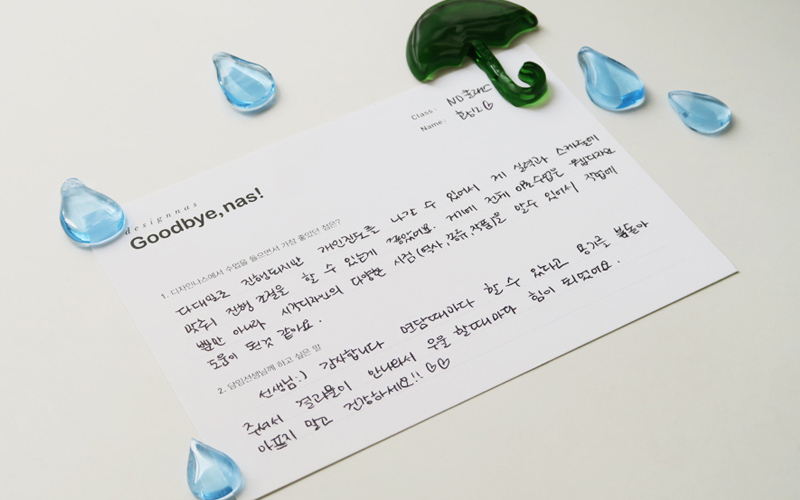 Class: ND클래스
Name:
designnas
Goodbye,nas!
1. 디자인나스에서 수업을 들으면서 가장 좋았던 점은?
다대일로 진행되지만 개인진도를 나갈 수 있어서 제 실력과 스케줄에
맞춰 진행 조절을 할 수 있는게 좋았어요. 게다 전체 이론수업은 웹디자인
뿐만 아니라 시각디자인의 다양한 시점(역사, 종류, 작품)을 알 수 있어서 작업에
도움이 된것 같아요.
2. 담임선생님께 하고 싶은 말
선생님:) 감사합니다 면담때마다 할 수 있다고 용기를 북돋아
주셔서 결과물이 안나와서 우울 할때마다 힘이 되었어요.
아프지 말고 건강하세요!! ♡♡